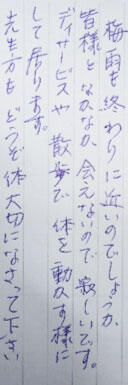 梅雨も終わりに近いのでしょうか、
皆様となかなか会えないので寂しいです。
ディサービスや散歩で体を動かす様に
して居ります。
先生方もどうぞ体大切になさって下さい